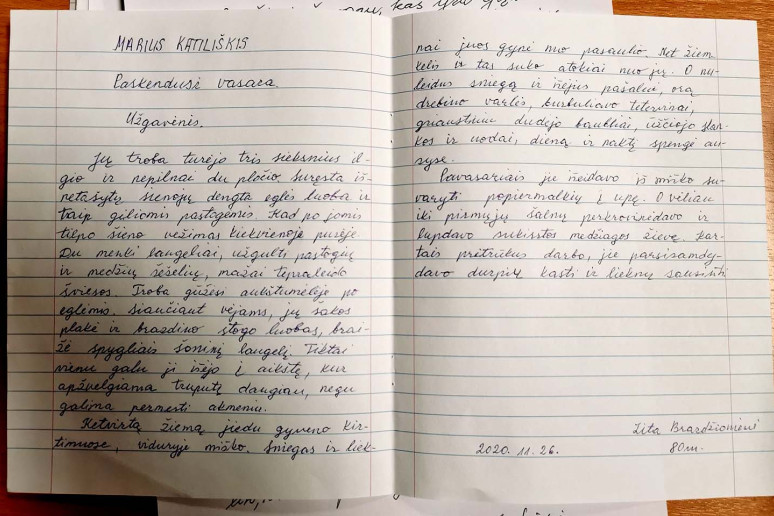 MARIUS KATILIŠKIS
Paskendusi vasara.
Užgavėnės.
Jų troba turėjo tris sieksnius il-
gio ir nepilnai du pločio suręsta iš
netašytų sienojų dengta eglės luoba ir
taip giliomis pastogėmis. Kad po jomis
tilpo šieno vežimas kiekvienoje pusėje.
Du menki langeliai, užgulti pastogių
ir medžių šešėlių, mažai tepraleido
šviesos. Troba gūžėsi aukštumėlėje po
eglėmis. Siaučiant vėjams, jų šakos
plakė ir brazdino stogo luobas, brai-
žė spygliais šoninį langelį. Tiktai
vienu galu ji išėjo į aikštę, kur
apžvelgiama truputį daugiau, negu
galima permesti akmeniu.
Ketvirtą žiemą jiedu gyveno kir-
timuose, viduryje miško. Sniegas ir liek-
nai juos gynė nuo pasaulio. Net žiem-
kelis ir tas suko atokiai nuo jų. O nu-
leidus sniegą ir išėjus pašalui, orą
drebino varlės, burbuliavo tetervinai,
griaustiniu dudėjo baubliai, ūžčiojo slan-
kos ir uodai, dieną ir naktį spengė au-
syse.
Pavasariais jie išeidavo iš miško su-
varyti popiermalkių į upę. O vėliau
iki pirmųjų šalnų perkrovinėdavo ir
lupdavo sukirstos medžiagos žievę. Kar-
tais pritrūkus darbo, jie parsisamdy-
davo durpių kasti ir lieknų sausinti
Zita Brazdžionienė
2020. 11. 26. 80m.